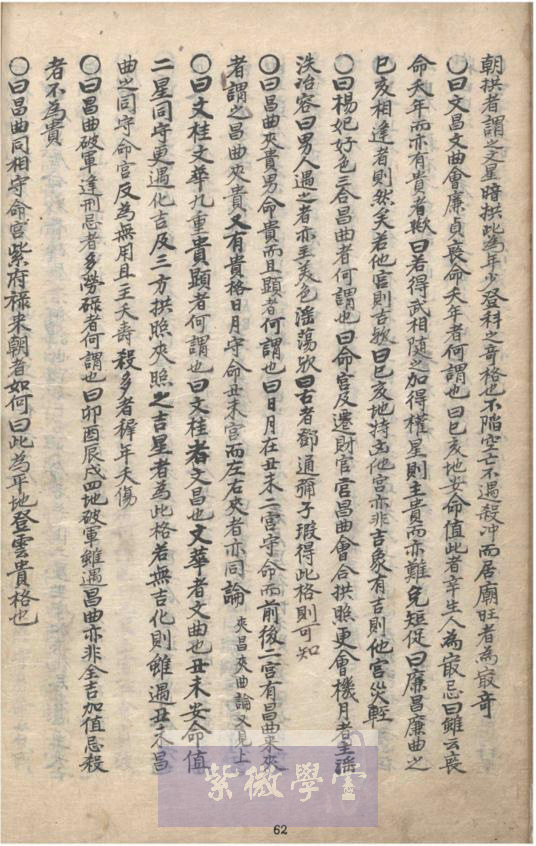 朝拱者謂之文星暗拱此為年少登科之奇格也不陷空亡不遇殺冲而居廟旺者為㝡奇
〇曰文昌文曲會廉貞喪命夭年者何謂也曰巳亥地安命值此者辛生人為㝡忌曰雖云喪
命夭年而亦有貴者歟曰若得武相隨之加得權星則主貴而亦難免短促曰廉昌廉曲之
巳亥相逢者則然矣若他宮則吉歟曰巳亥地特凶他宮亦非吉象有吉則他宮災輕
〇曰楊妃好色三合昌曲者何謂也曰命宮及遷財官宮昌曲會合拱照更會機月者主滛
泆冶容曰男人遇之者亦主美色滛蕩歟曰古者鄧通彌子瑕得此格則可知
〇曰昌曲夾貴男命貴而且顯者何謂也曰日月在丑未二宮守命而前後二宮有昌曲来夾
者謂之昌曲夾貴又有貴格日月守命丑未宮而左右夾者亦同論 夾昌夾曲論又見上
〇曰文桂文華九重貴顯者何謂也曰文桂者文昌也文華者文曲也丑未安命值
二星同守更遇化吉及三方拱照夾照之吉星者為此格若無吉化則雖遇丑未昌
曲之同守命宮反為無用且主夭壽殺多者穉年夭傷
〇曰昌曲破軍逢刑忌者多勞碌者何謂也曰卯酉辰戌四地破軍雖遇昌曲亦非全吉加值忌殺
者不為貴
〇曰昌曲同相守命宮紫府祿来朝者如何曰此為平地登雲貴格也
紫微學堂
62